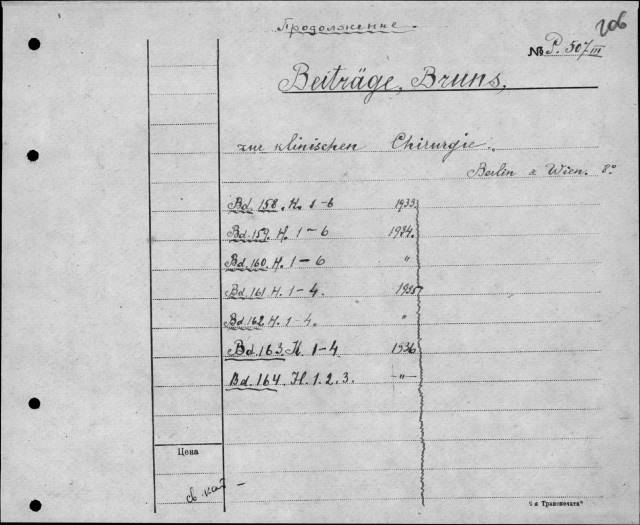 Продолжение.
206
№ P. 507 III
Beiträge, Bruns,
zur klinischen Chirurgie.
Berlin u Wien. 8°
Bd. 158. H. 1-6 1933
Bd. 159. H. 1-6 1934.
Bd. 160. H. 1-6 "
Bd. 161 H. 1-4. 1935
Bd. 162. H. 1-4. "
Bd. 163. H. 1-4 1936
Bd. 164. H. 1. 2. 3. -"-
Цена
св. кат -
я Транспечать"